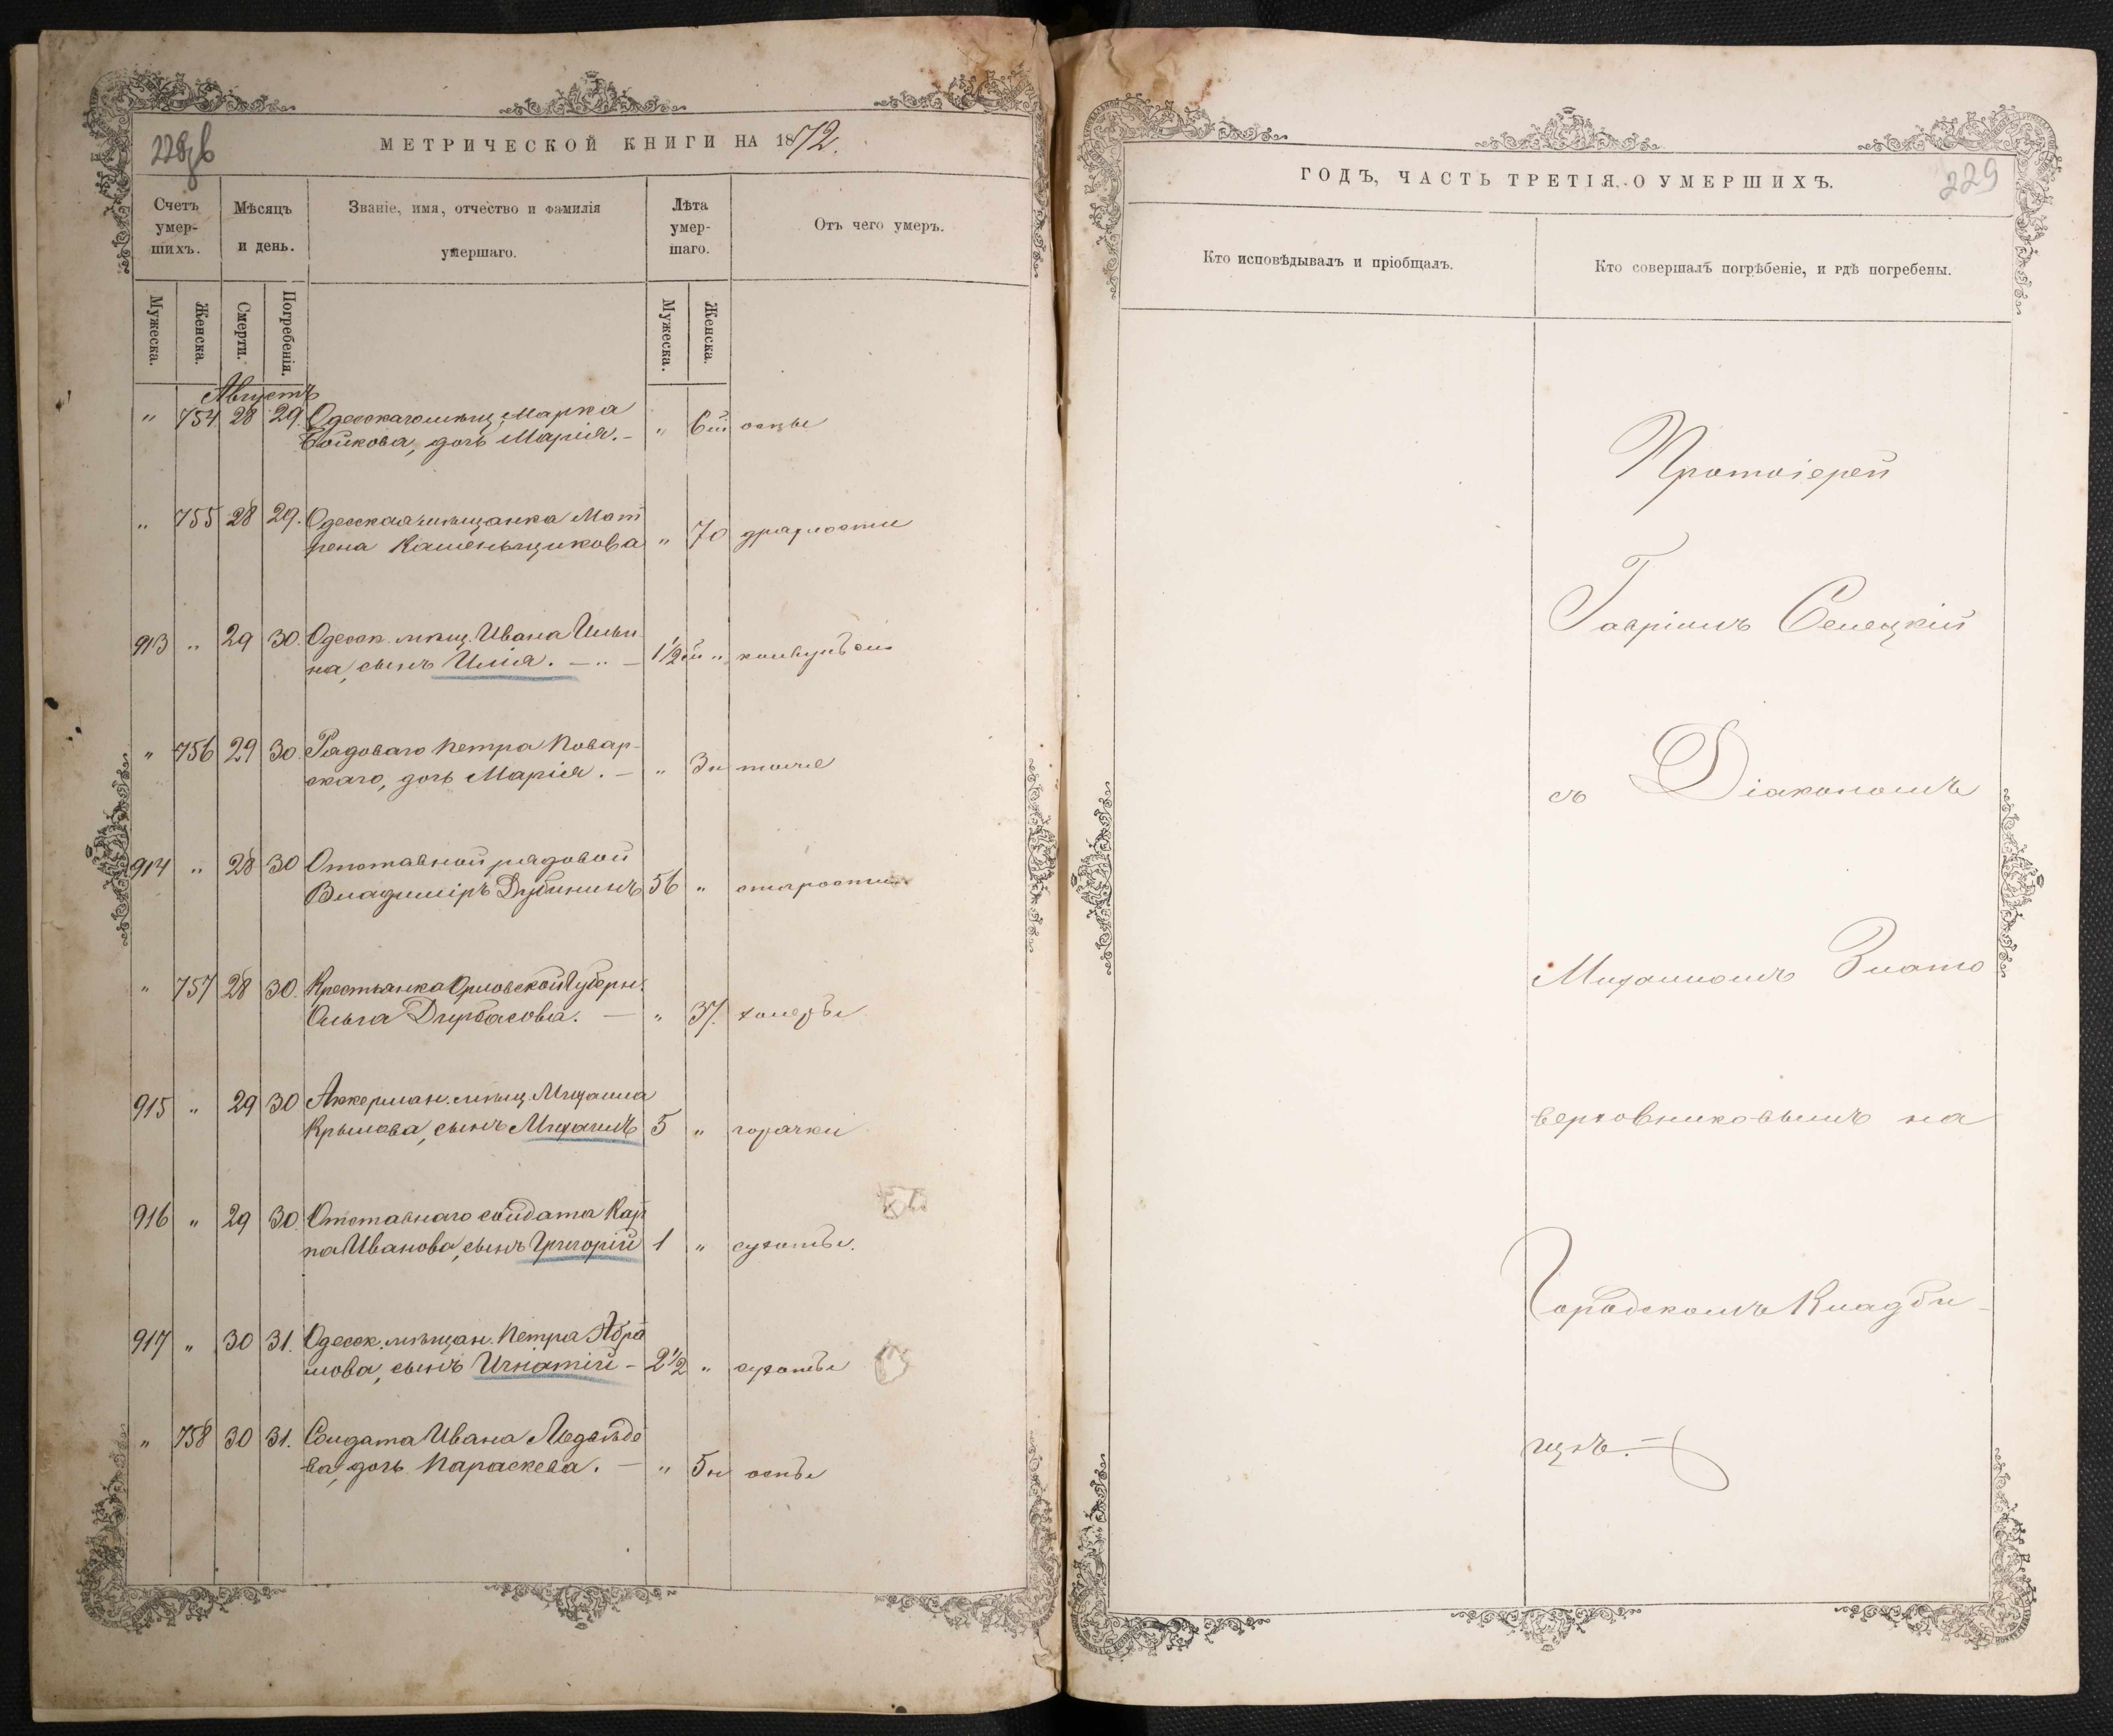 228 об
МЕТРИЧЕСКОЙ КНИГИ НА 1872.
Счетъ умер- шихъ.
Мѣсяцъ и день.
Званіе, имя, отчество и фамилія умершаго.
Лѣта умер- шаго.
Отъ чего умеръ.
Мужеска.
Женска.
Смерти.
Погребенія.
Мужеска.
Женска.
Августъ
" 754 28 29. Одесскаго мѣщ. Марка
Бойкова, дочь Марія. — " 6 оспы
" 755 28 29. Одесская мѣщанка Мат
рена Каменьщикова " 70 дряхлости
913 " 29 30. Одесск. мѣщ. Ивана Ильи
на, сынъ Илія. — " — 1½ "
" 756 29 30. Рядоваго Петра Повар-
скаго, дочь Марія. — " 3н тоже
914 " 28 30 Отставной рядовой
Владиміръ Дубининъ 56 " старости
" 757 28 30. Крестьянка Орловской Губерн.
Ольга — " 37. холеры
915 " 29 30 Аккерман. мѣщ. Михаила
Крылова, сынъ Михаилъ 5 " горячки
916 " 29 30. Отставнаго солдата Кар
па Иванова, сынъ Григорій 1 " сухоты.
917 " 30 31. Одесск. мѣщан. Петра Абра
мова, сынъ Игнатій — 2½ " сухоты
" 758 30 31. Солдата Ивана
ва, дочь Параскева. — " 5н оспы
ГОДЪ, ЧАСТЬ ТРЕТІЯ, О УМЕРШИХЪ.
229
Кто исповѣдывалъ и пріобщалъ.
Кто совершалъ погрѣбеніе, и гдѣ погребены.
Протоіерей
Гавріилъ Селецкій
съ Діакономъ
Михаиломъ Злато
верховниковымъ на
Городскомъ Кладби-
щѣ. —